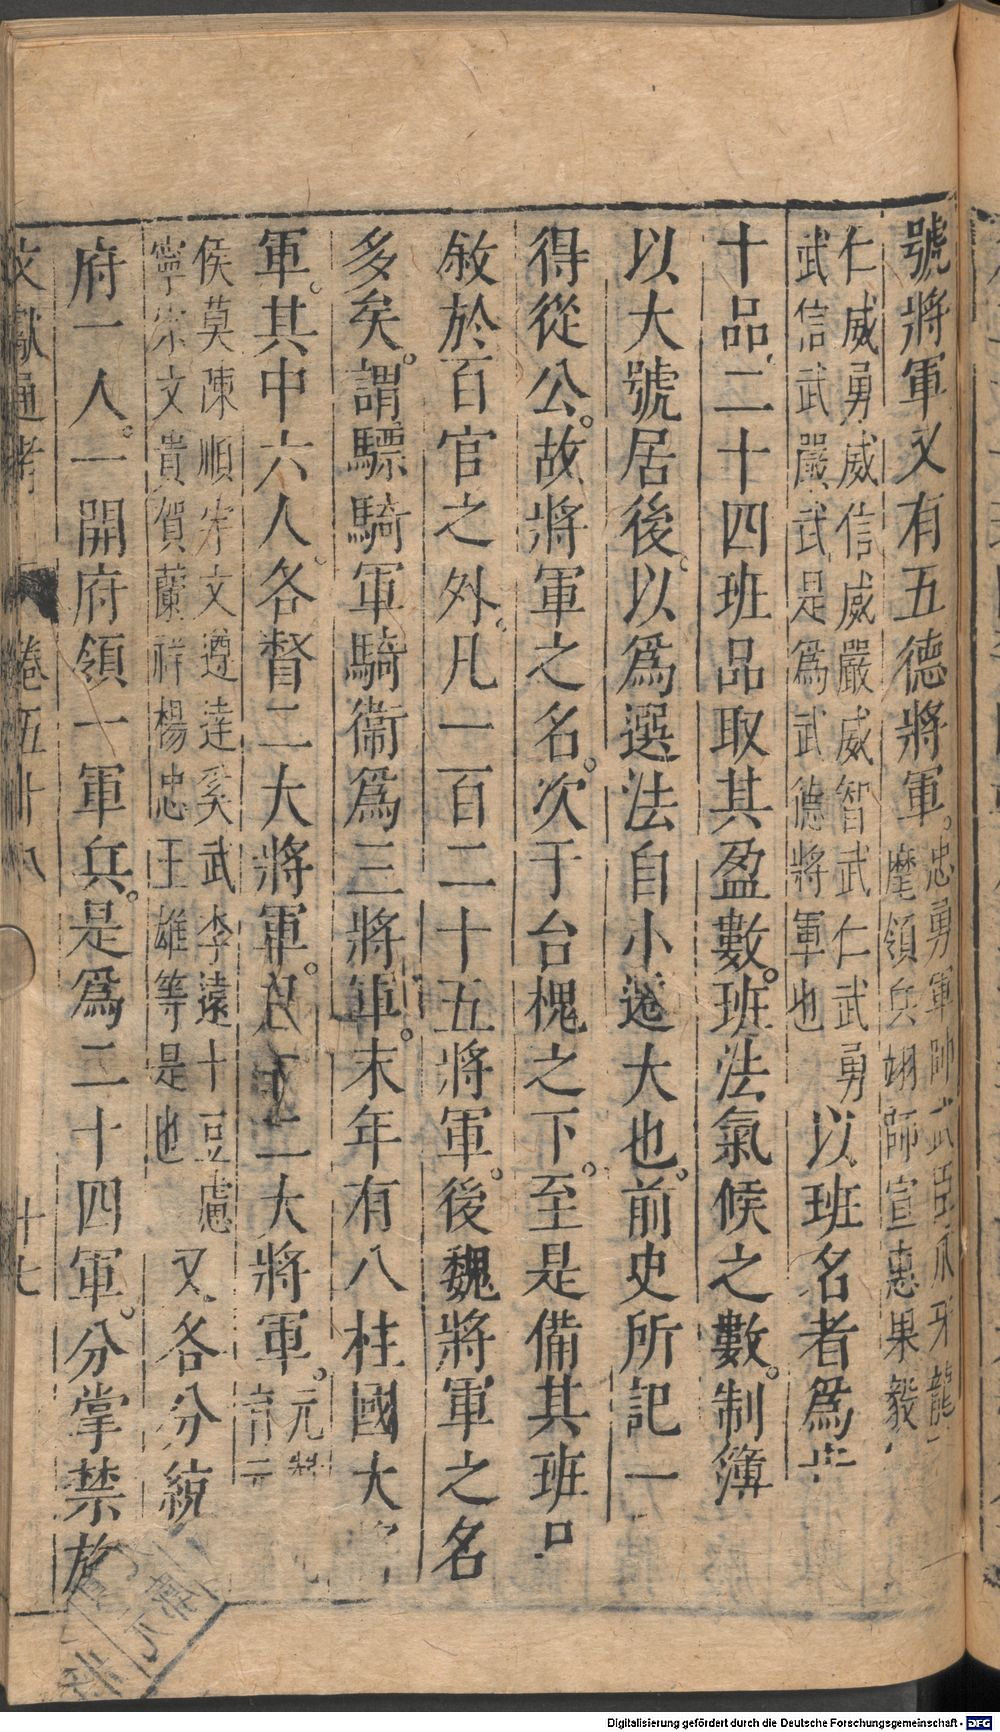 號將軍又有五德將軍。忠勇軍師武臣爪牙龍
麾領兵翊師宣惠果毅
仁威勇威信威嚴威智武仁武勇
武信武嚴武是爲武德將軍也
以班名者爲
十品二十四班品取其盈數。班法氣候之數。制簿
以大號居後。以爲選法自小遷大也。前史所記一
得從公。故將軍之名。次于台槐之下。至是備其班
敘於百官之外。凡一百二十五將軍。後魏將軍之名
多矣。謂驃騎軍騎衞爲三將軍。末年有八柱國大
軍。其中六人。各督二大將軍。凡十二大將軍。元
育元
侯莫陳順宇文遵達奚武李遠十豆盧
寧宇文貴賀蘭祥楊忠王雄等是也
又各分統
府一人。一開府領一軍兵。是爲二十四軍。分掌禁
文獻通考 卷五十八 十七
Digitalisierung gefördert durch die Deutsche Forschungsgemeinschaft - DFG